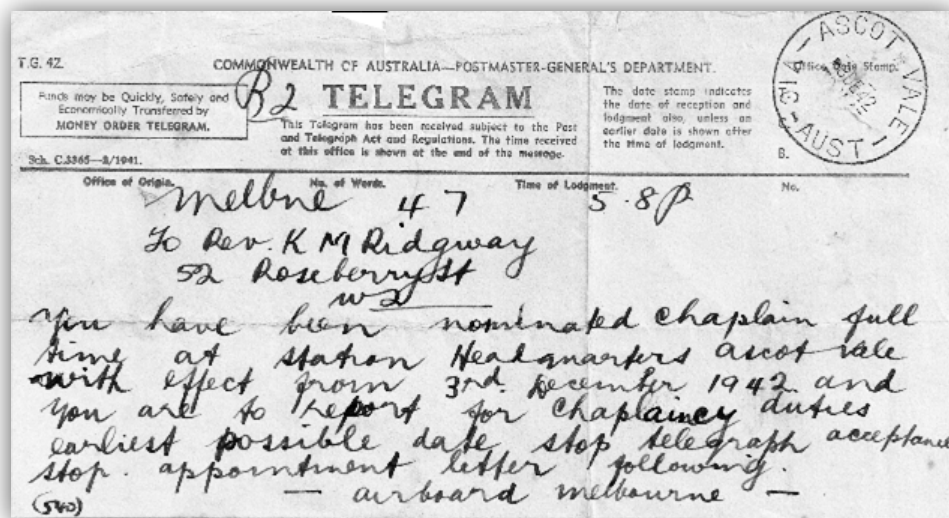 T.G. 42.
COMMONWEALTH OF AUSTRALIA—POSTMASTER-GENERAL'S DEPARTMENT.
Office Date Stamp.
ASCOT VALE
VIC-AUST
Funds may be Quickly, Safely and
Economically Transferred by
MONEY ORDER TELEGRAM.
R2
TELEGRAM
This Telegram has been received subject to the Post
and Telegraph Act and Regulations. The time received
at this office is shown at the end of the message.
The date stamp indicates
the date of reception and
lodgment also, unless an
earlier date is shown after
the time of lodgment.
B.
Sch. C.3365—2/1941.
Office of Origin. No. of Words. Time of Lodgment. No.
Melbne 47 5.8p
To Rev. K M Ridgway
52 Roseberry St
W2
You have been nominated chaplain full
time at station Headquarters ascot vale
with effect from 3rd. December 1942 and
you are to report for chaplaincy duties
earliest possible date stop telegraph acceptance
stop. appointment letter following.
— airboard melbourne —
(540)